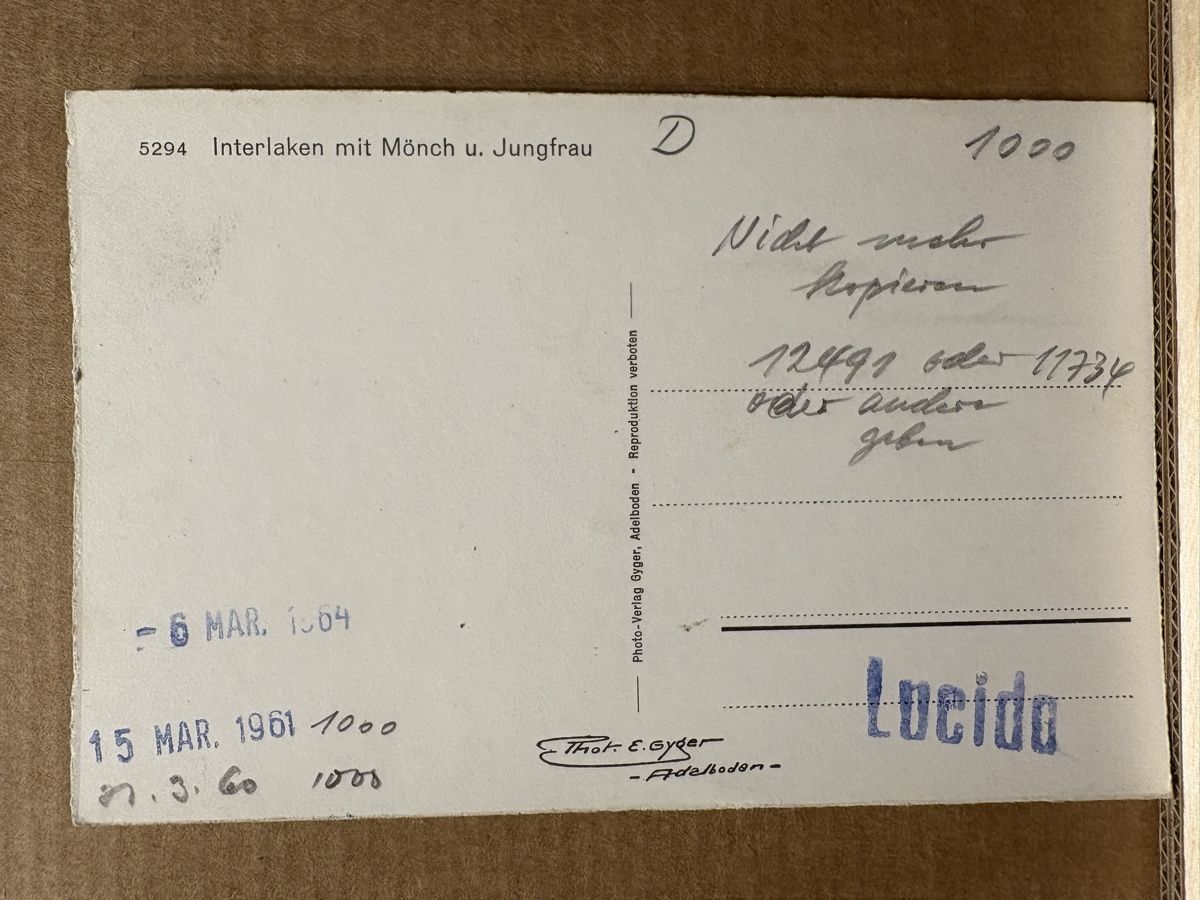 5294 Interlaken mit Mönch u. Jungfrau
D
1000
Nicht mehr
kopieren
12491 oder 11734
oder andere
geben
Photo-Verlag Gyger, Adelboden - Reproduktion verboten
- 6 MAR. 1964
15 MAR. 1961 1000
.3.60 1000
Lucido
Phot. E. Gyger
- Adelboden -